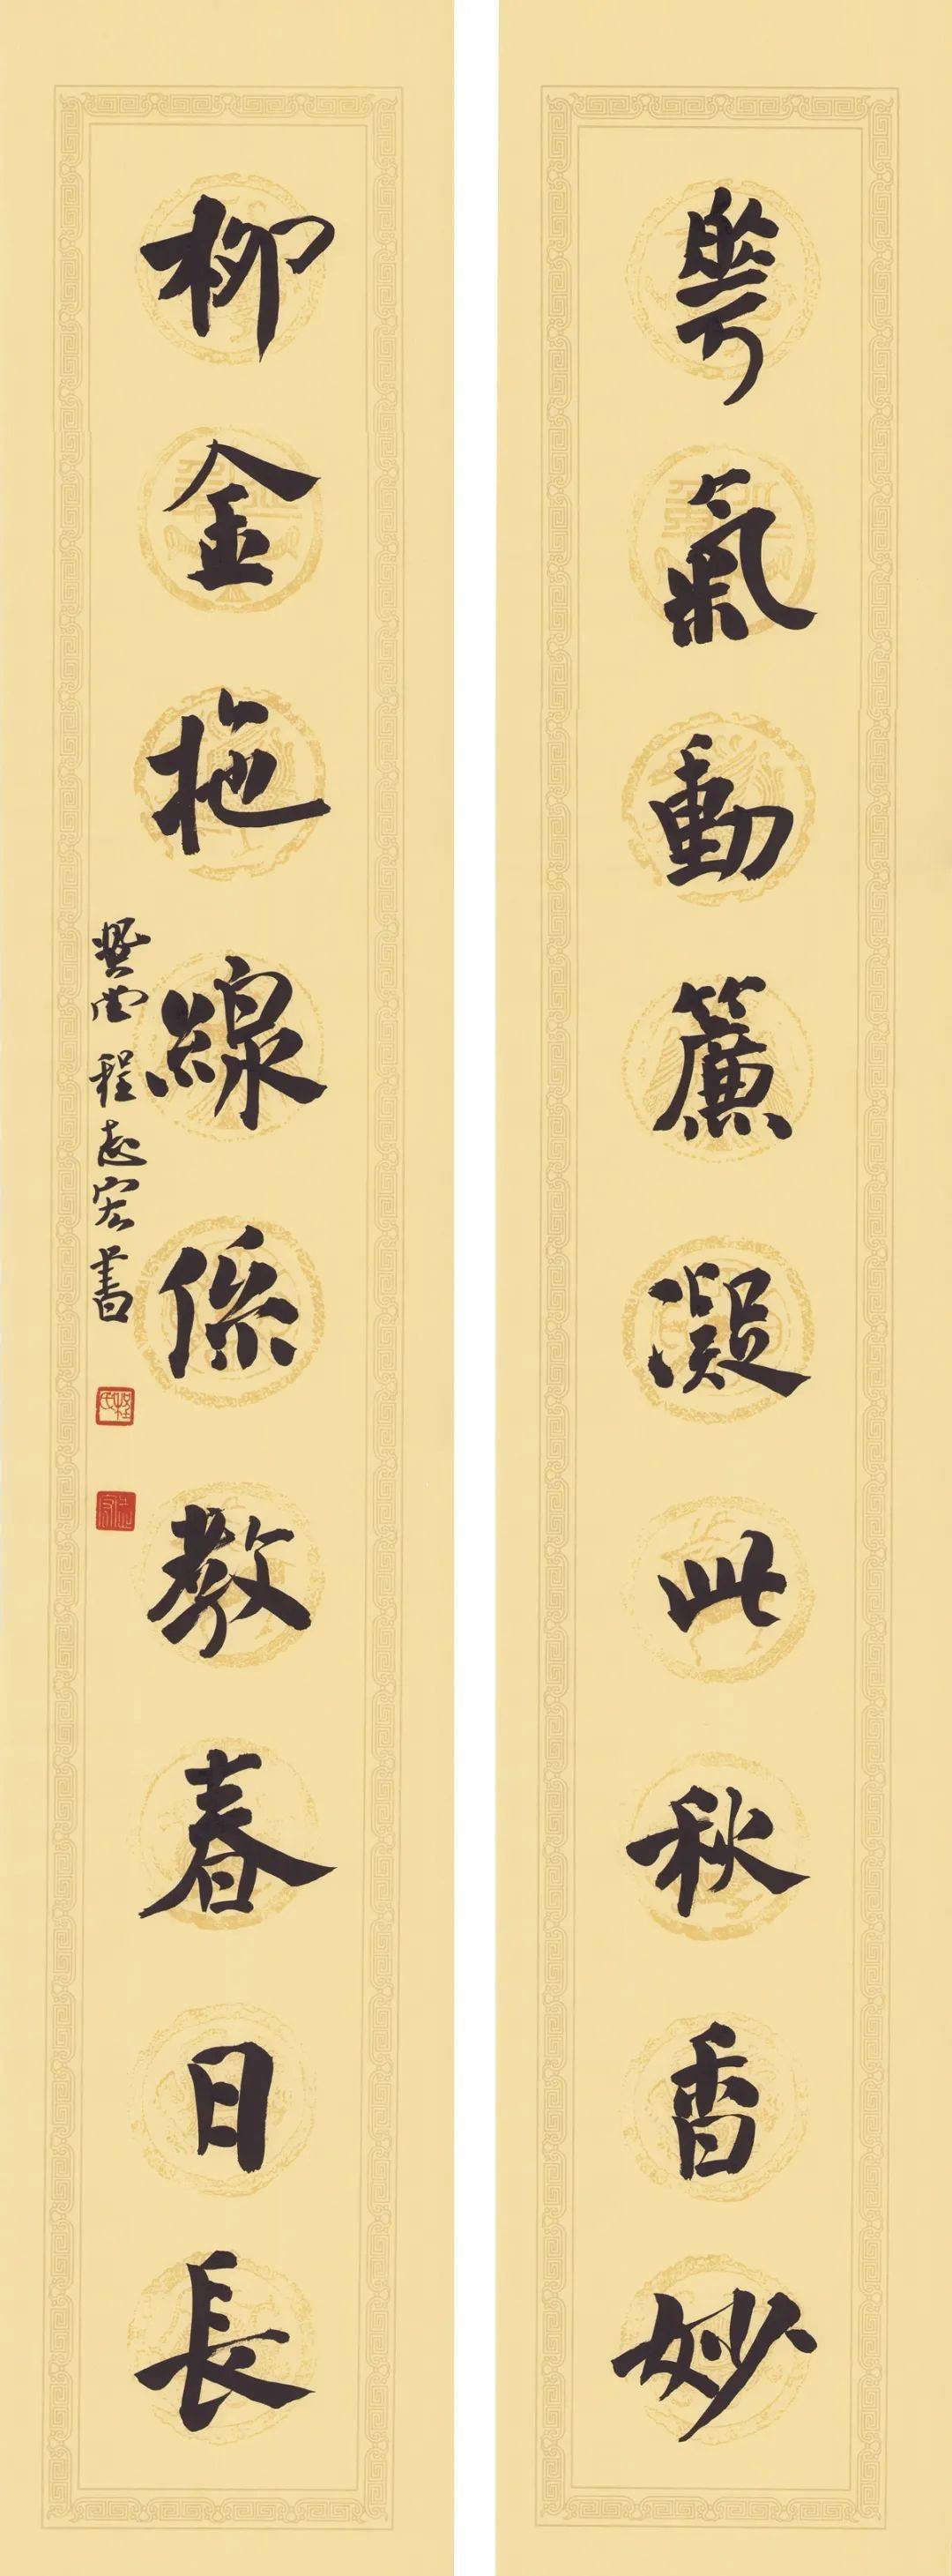 萼氣動簾凝此秋香妙
柳金拖線係教春日長
程志宏書